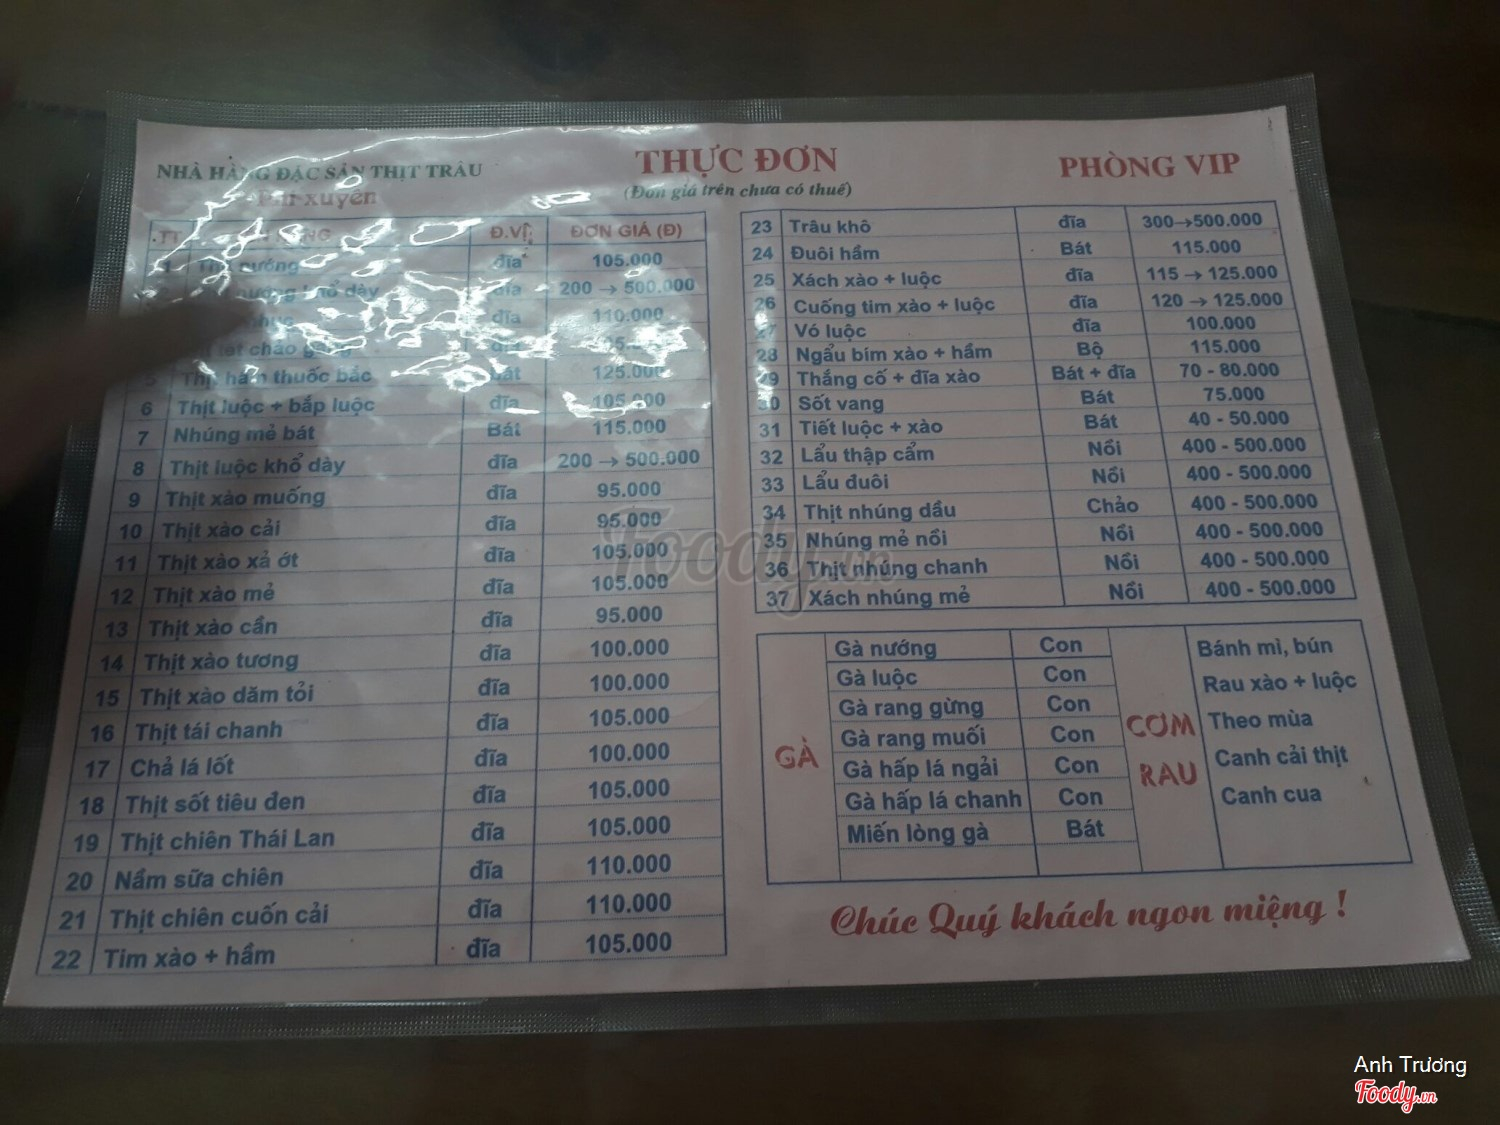 NHÀ HÀNG ĐẶC SẢN THỊT TRÂU
THỰC ĐƠN
(Đơn giá trên chưa có thuế)
PHÒNG VIP
xuyên
TT Đ.VỊ ĐƠN GIÁ (Đ)
1 nướng đĩa 105.000
nướng khổ dày đĩa 200 → 500.000
đĩa 110.000
chảo
5 Thịt hầm thuốc bắc Bát 125.000
6 Thịt luộc + bắp luộc đĩa 105.000
7 Nhúng mẻ bát Bát 115.000
8 Thịt luộc khổ dày đĩa 200 → 500.000
9 Thịt xào muống đĩa 95.000
10 Thịt xào cải đĩa 95.000
11 Thịt xào xả ớt đĩa 105.000
12 Thịt xào mẻ đĩa 105.000
13 Thịt xào cần đĩa 95.000
14 Thịt xào tương đĩa 100.000
15 Thịt xào dăm tỏi đĩa 100.000
16 Thịt tái chanh đĩa 105.000
17 Chả lá lốt đĩa 100.000
18 Thịt sốt tiêu đen đĩa 105.000
19 Thịt chiên Thái Lan đĩa 105.000
20 Nầm sữa chiên đĩa 110.000
21 Thịt chiên cuốn cải đĩa 110.000
22 Tim xào + hầm đĩa 105.000
23 Trâu khô đĩa 300→500.000
24 Đuôi hầm Bát 115.000
25 Xách xào + luộc đĩa 115 → 125.000
26 Cuống tim xào + luộc đĩa 120 → 125.000
27 Vó luộc đĩa 100.000
28 Ngẩu bím xào + hầm Bộ 115.000
29 Thắng cố + đĩa xào Bát + đĩa 70 - 80.000
30 Sốt vang Bát 75.000
31 Tiết luộc + xào Bát 40 - 50.000
32 Lẩu thập cẩm Nồi 400 - 500.000
33 Lẩu đuôi Nồi 400 - 500.000
34 Thịt nhúng dầu Chảo 400 - 500.000
35 Nhúng mẻ nồi Nồi 400 - 500.000
36 Thịt nhúng chanh Nồi 400 - 500.000
37 Xách nhúng mẻ Nồi 400 - 500.000
GÀ
Gà nướng Con
Gà luộc Con
Gà rang gừng Con
Gà rang muối Con
Gà hấp lá ngải Con
Gà hấp lá chanh Con
Miến lòng gà Bát
CƠM
RAU
Bánh mì, bún
Rau xào + luộc
Theo mùa
Canh cải thịt
Canh cua
Chúc Quý khách ngon miệng !
Foody.vn
Anh Trương
Foody.vn